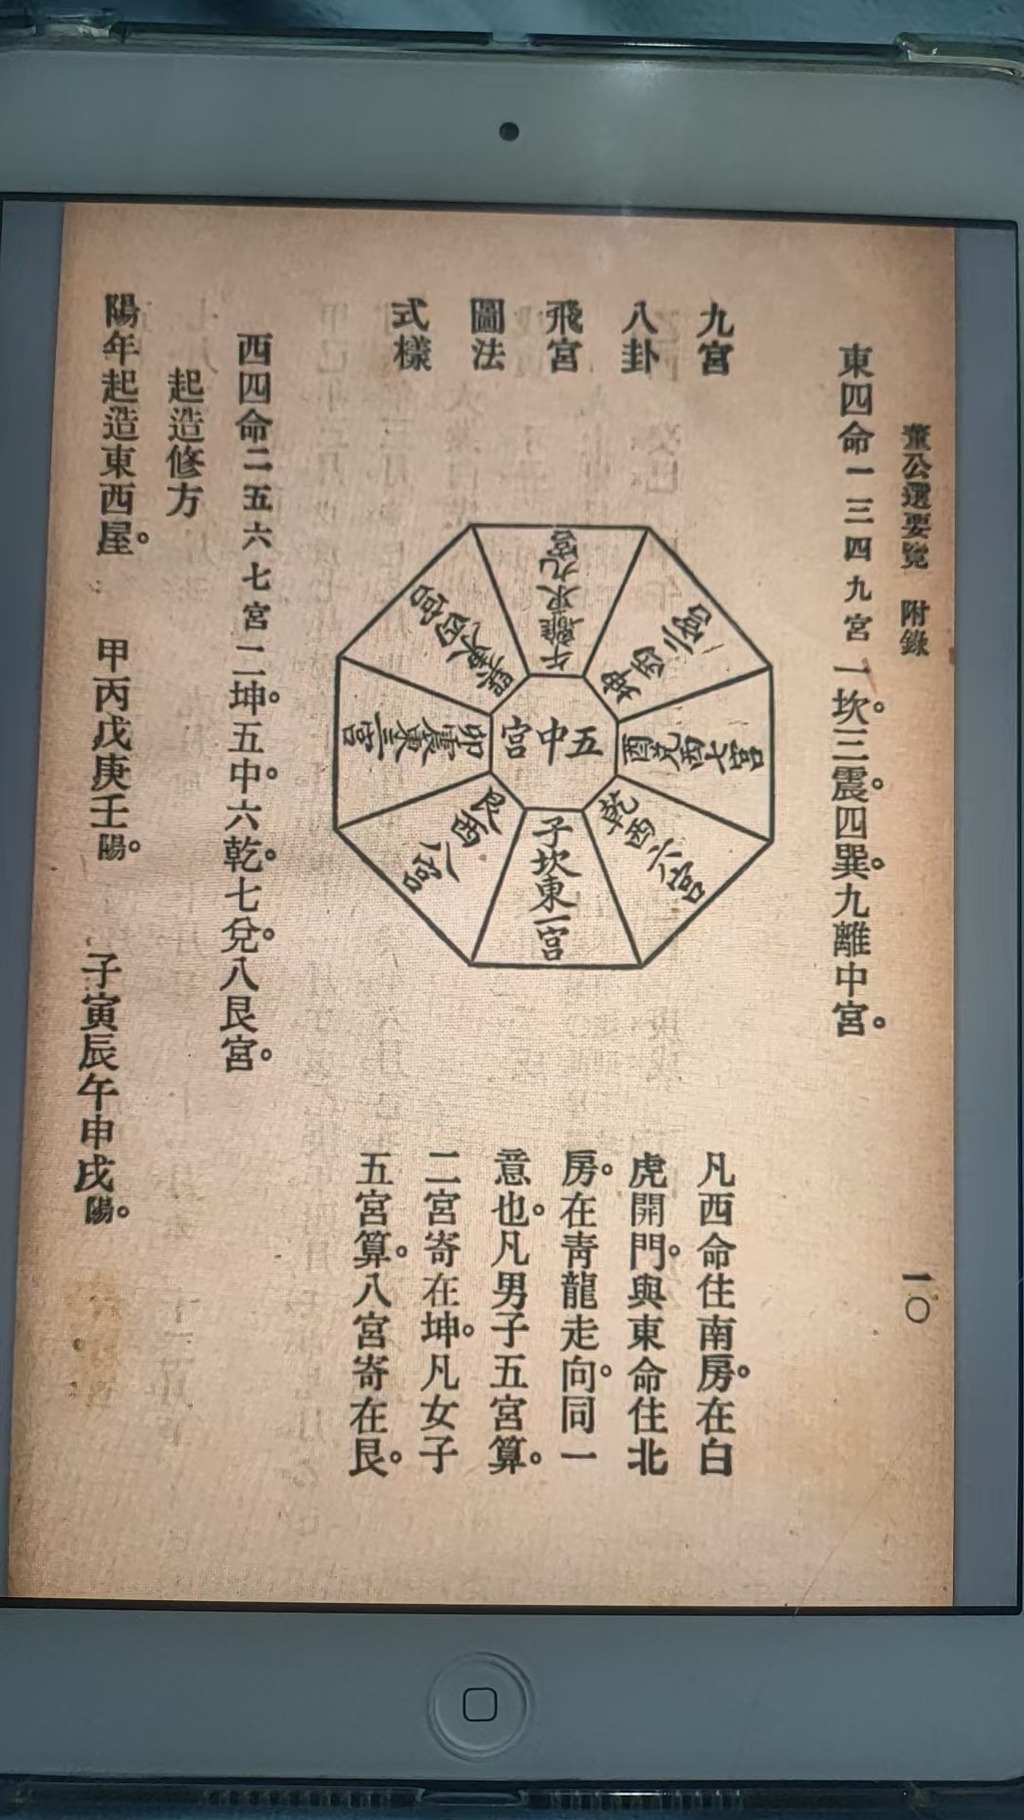 董公選要覽　附錄
一〇
東四命一三四九宮一坎。三震。四巽。九離中宮。
九宮
八卦
飛宮
圖法
式樣
午離東九宮
坤西二宮
酉兌西七宮
乾西六宮
子坎東一宮
艮西八宮
卯震東三宮
巽東四宮
五中宮
凡西命住南房。在白
虎開門。與東命住北
房。在青龍走向。同一
意也。凡男子五宮算。
二宮寄在坤。凡女子
五宮算。八宮寄在艮。
西四命二五六七宮二坤。五中。六乾。七兌。八艮宮。
起造修方
陽年起造東西屋。　甲丙戊庚壬陽。　子寅辰午申戌陽。